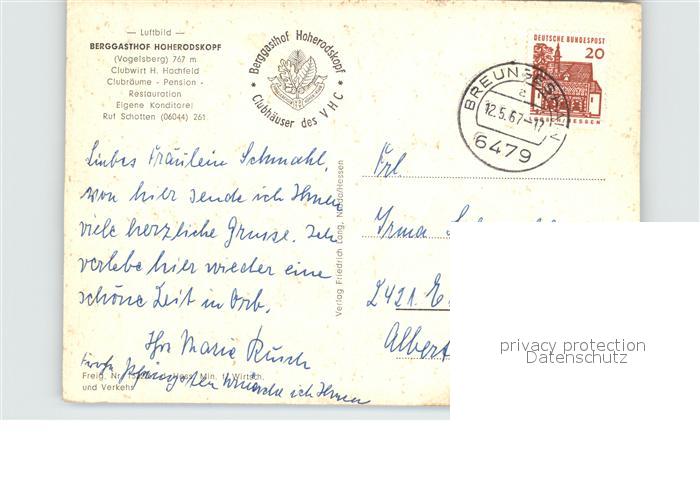 — Luftbild —
BERGGASTHOF HOHERODSKOPF
(Vogelsberg) 767 m
Clubwirt H. Hochfeld
Clubräume - Pension -
Restauration
Eigene Konditorei
Ruf Schotten (06044) 261
Berggasthof Hoherodskopf
* Clubhäuser des VHC *
DEUTSCHE BUNDESPOST
20
HESSEN
BREUNGESHAIN
a
12.5.67-17
6479
Liebes Fräulein Schmahl,
von hier sende ich Ihnen
viele herzliche Grüsse. Ich
verlebe hier wieder eine
schöne Zeit in Orb.
Ihr Marie Rusch
Frohe Pfingsten wünsche ich Ihnen
Freig. Nr. Hess. Min. f. Wirtsch.
und Verkehr
Verlag Friedrich Lang, Nidda/Hessen
Frl
Irma
2421 E
Albert
privacy protection
Datenschutz